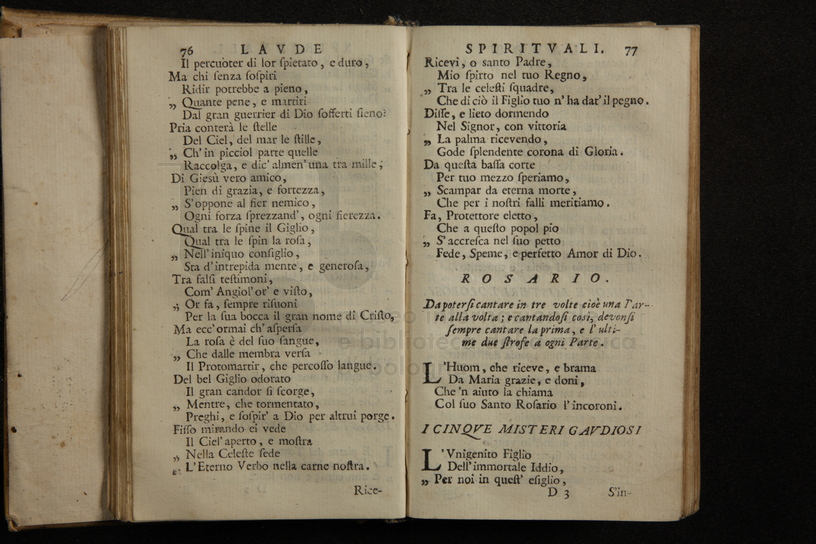 76 LAVDE
Il percuoter di lor ſpietato, e duro,
Ma chi ſenza ſoſpiri
Ridir potrebbe a pieno,
„ Quante pene, e martiri
Dal gran guerrier di Dio ſofferti ſieno?
Pria conterà le ſtelle
Del Ciel, del mar le ſtille,
„ Ch' in picciol parte quelle
Raccolga, e dic' almen' una tra mille;
Di Giesù vero amico,
Pien di grazia, e fortezza,
„ S'oppone al fier nemico,
Ogni forza ſprezzand', ogni fierezza.
Qual tra le ſpine il Giglio,
Qual tra le ſpin la roſa,
„ Nell'iniquo conſiglio,
Sta d'intrepida mente, e generoſa,
Tra falſi teſtimoni,
Com' Angiol' or' e viſto,
„ Or fa, ſempre riſuoni
Per la ſua bocca il gran nome di Criſto,
Ma ecc' ormai ch' aſperſa
La roſa è del ſuo ſangue,
„ Che dalle membra verſa
Il Protomartir, che percoſſo langue.
Del bel Giglio odorato
Il gran candor ſi ſcorge,
„ Mentre, che tormentato,
Preghi, e ſoſpir' a Dio per altrui porge.
Fiſſo mirando ei vede
Il Ciel'aperto, e moſtra
„ Nella Celeſte ſede
L'Eterno Verbo nella carne noſtra.
Rice-
SPIRITVALI. 77
Ricevi, o santo Padre,
Mio ſpirto nel tuo Regno,
„ Tra le celeſti ſquadre,
Che di ciò il Figlio tuo n' ha dat' il pegno.
Diſſe, e lieto dormendo
Nel Signor, con vittoria
„ La palma ricevendo,
Gode ſplendente corona di Gloria.
Da queſta baſſa corte
Per tuo mezzo ſperiamo,
„ Scampar da eterna morte,
Che per i noſtri falli meritiamo.
Fa, Protettore eletto,
Che a queſto popol pio
„ S'accreſca nel ſuo petto
Fede, Speme, e perfetto Amor di Dio.
ROSARIO.
Da poterſi cantare in tre volte cioè una Par-
te alla volta; e cantandoſi così, devonſi
ſempre cantare la prima, e l' ulti-
me due ſtrofe a ogni Parte.
L'Huom, che riceve, e brama
Da Maria grazie, e doni,
Che 'n aiuto la chiama
Col ſuo Santo Roſario l'incoroni.
I CINQVE MISTERI GAVDIOSI
L'Vnigenito Figlio
Dell'immortale Iddio,
„ Per noi in queſt' eſiglio,
D 3 S'in-